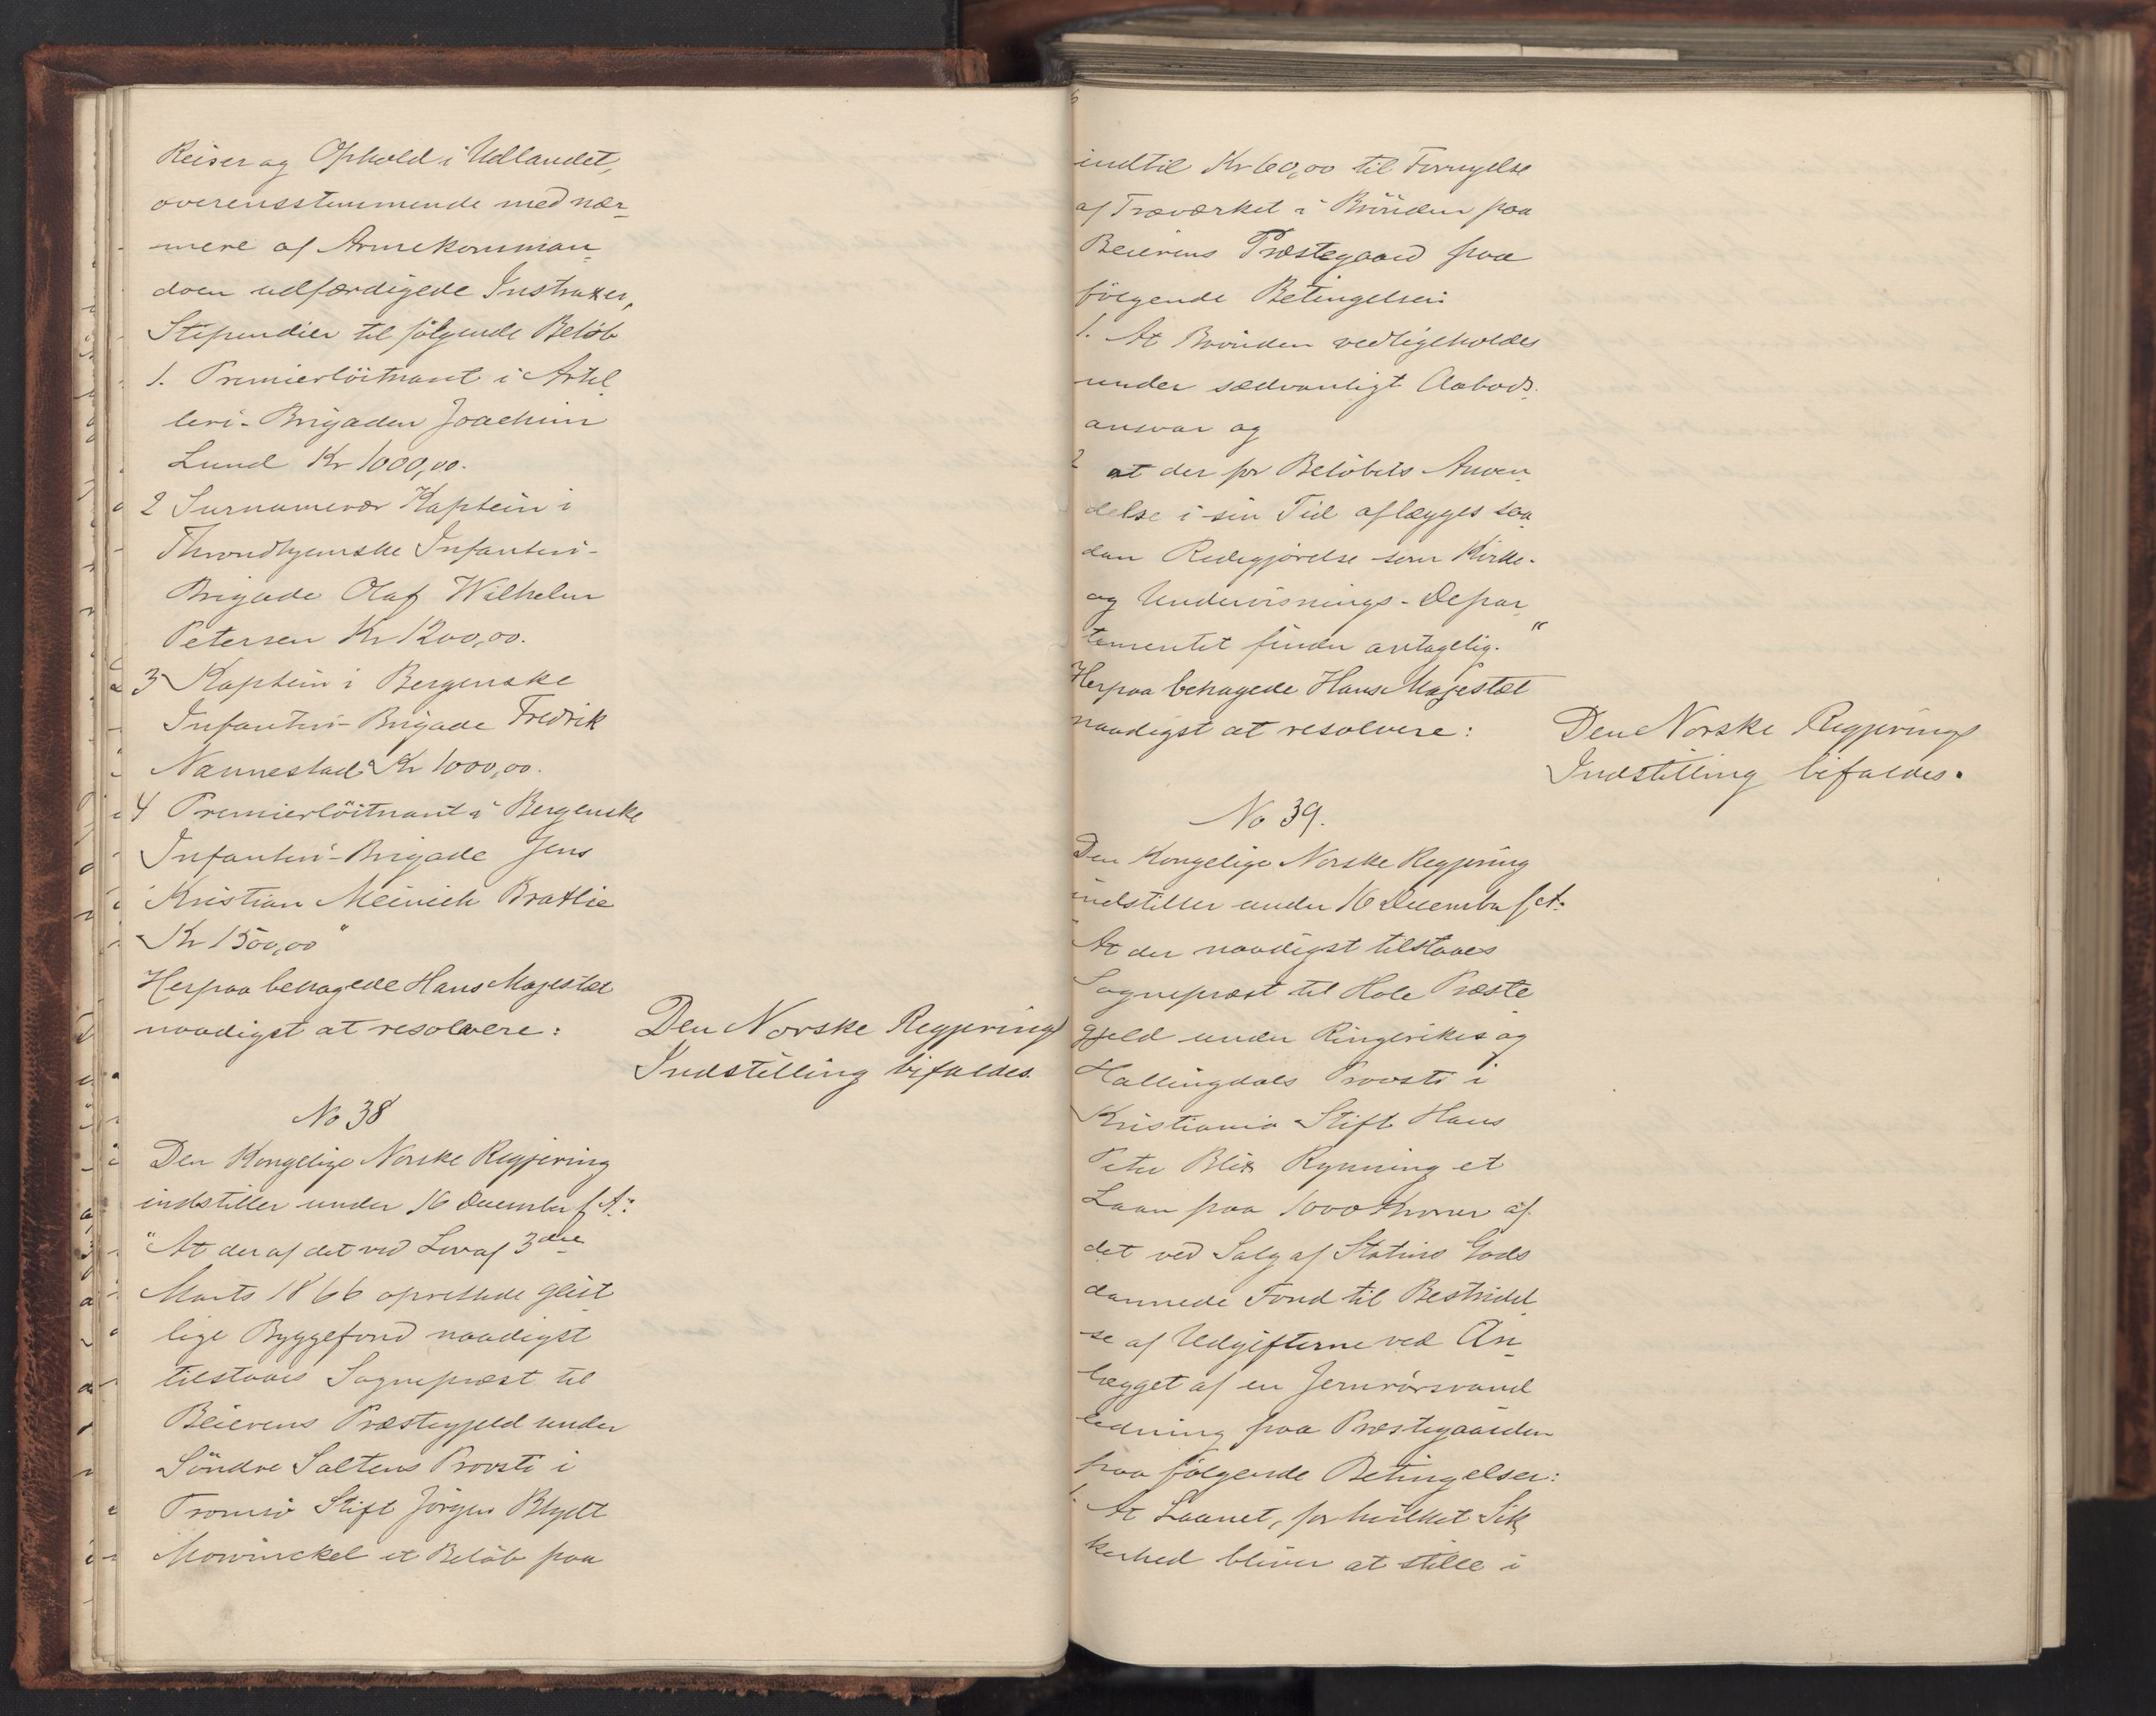 Reiser og Ophold i Udlandet,
overensstemmende med nær-
mere af Armekomman-
doen udfærdigede Instruxer,
Stipendier til følgende Beløb
1. Premierløitnant i Artil-
leri-Brigaden Joachim
Lund Kr 1000,00.
2 Surnumerær Kaptein i
Throndhjemske Infanteri-
Brigade Olaf Wilhelm
Petersen Kr 1200,00.
3 Kaptein i Bergenske
Infanteri-Brigade Fredrik
Nannestad Kr 1000,00.
4 Premierløitnant i Bergenske
Infanteri-Brigade Jens
Kristian Meinich Bratlie
Kr 1500,00"
Herpaa behagede Hans Majestæt
naadigst at resolvere:
Den Norske Regjerings
Indstilling bifaldes.
No 38
Den Kongelige Norske Regjering
indstiller under 16 December f. A:
"At der af det ved Lov af 3die
Marts 1866 oprettede geist-
lige Byggefond naadigst
tilstaaes Sognepræst til
Beierens Præstegjeld under
Søndre Saltens Provsti i
Tromsø Stift Jörgen Blydt
Mowinckel et Beløb paa
indtil Kr 60,00 til Fornyelse
af Træværket i Brönden paa
Beierens Præstegaard paa
følgende Betingelser:
1. At Brönden vedligeholdes
under sædvanligt Aabods-
ansvar og
2 at der for Beløbets Anven-
delse i sin Tid aflægges saa-
dan Redegjørelse som Kirke-
og Undervisnings-Depar-
tementet finder antagelig."
Herpaa behagede Hans Majestæt
naadigst at resolvere:
Den Norske Regjerings
Indstilling bifaldes.
No 39.
Den Kongelige Norske Regjering
indstiller under 16 December f. A:
"At der naadigst tilstaaes
Sognepræst til Hole Præste
gjeld under Ringerikes og
Hallingdals Provsti i
Kristiania Stift Hans
Peter Blix Rynning et
Laan paa 1000 Kroner af
det ved Salg af Statens Gods
dannede Fond til Bestridel-
se af Udgifterne ved An-
lægget af en Jernrörsvand
ledning paa Præstegaarden
paa følgende Betingelser:
1. At Laanet, for hvilket Sik-
kerhed bliver at stille i